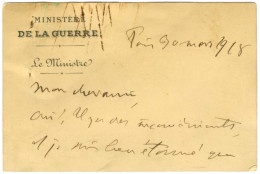 MINISTÈRE
DE LA GUERRE.
Le Ministre
Paris 30 mars 1918
Mon cher ami
oui! Il y a des inconvénients,
et je suis bien étonné que